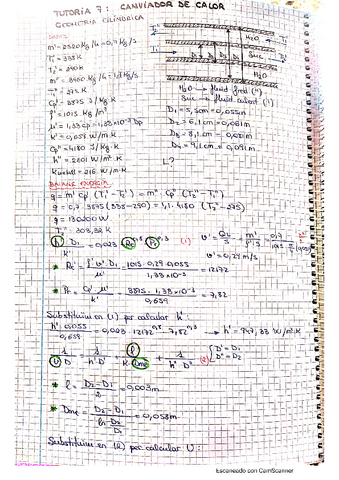 TUTORIA 7: CANVIADOR DE CALOR
GEOMETRIA CILÍNDRICA
DADES
m' = 2520 Kg/h = 0,7 Kg/s
T1' = 338 K
T2' = 290 K
T1" = 275 K
Cp' = 3875 J/Kg·K
ρ' = 1015 Kg/m³
K' = 0,659 W/m·K
Cp" = 4180 J/Kg·K
h" = 2601 W/m²·K
Kacer = 216 W/m·K
H2O → fluid fred (")
Suc → fluid calent (')
D1 = 5,5cm = 0,055m
D2 = 6,1cm = 0,061m
D3 = 8,1cm = 0,081m
D4 = 9,1cm = 0,091m
L?
BALANÇ ENERGIA
q = m' Cp' (T1' - T2') = m" Cp" (T2" - T1")
q = 0,7·3875(338-290) = 1,1·4180 (T2" - 275)
q = 130200 W
h' D1 / K' = 0,023 Re^0,8 Pr^0,3 (1)
v' = 0,29 m/s
* Re' = ρ' v' D1 / μ' = 1015·0,29·0,055 / 1,33·10⁻³ = 12172
* Pr = Cp' μ' / K' = 3875·1,33·10⁻³ / 0,659 = 7,82
Substituim en (1) per calcular h':
h' 0,055 / 0,659 = 0,023·12172^0,8·7,82^0,3 → h' = 947,33 W/m²·K
1 / U D = 1 / h' D' + l / K Dml + 1 / h" D" (2) { D' = D1 D" = D2
* l = D2 - D1 / 2 = 0,003m
* Dml = D2 - D1 / ln D2/D1 = 0,058m
Substituim en (2) per calcular U:
Escaneado con CamScanner